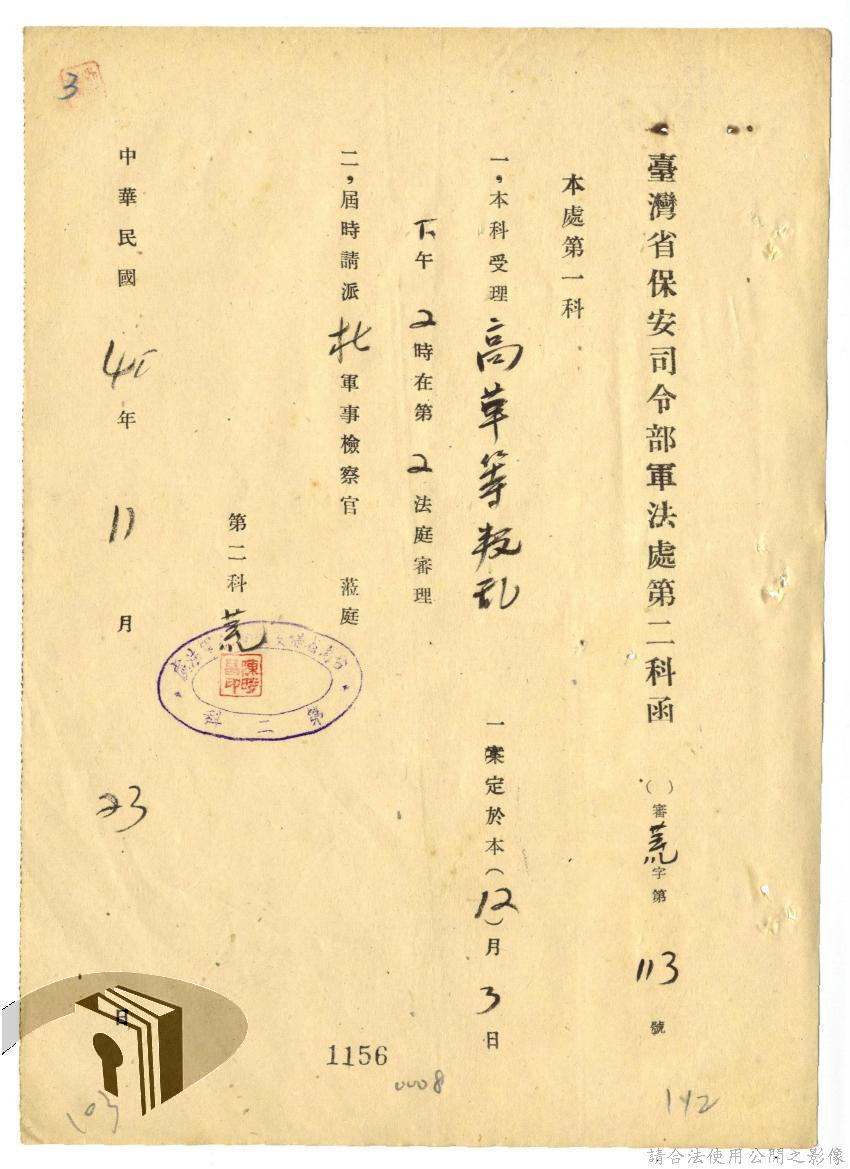 臺灣省保安司令部軍法處第二科函
( )審荒字第113號
本處第一科
一,本科受理高草等叛乱一案定於本(12)月3日
下午2時在第2法庭審理
二,屆時請派
軍事檢察官 蒞庭
第二科荒
第二科
中華民國
年11月23日
3
1156
0008
103
142
請合法使用公開之影像